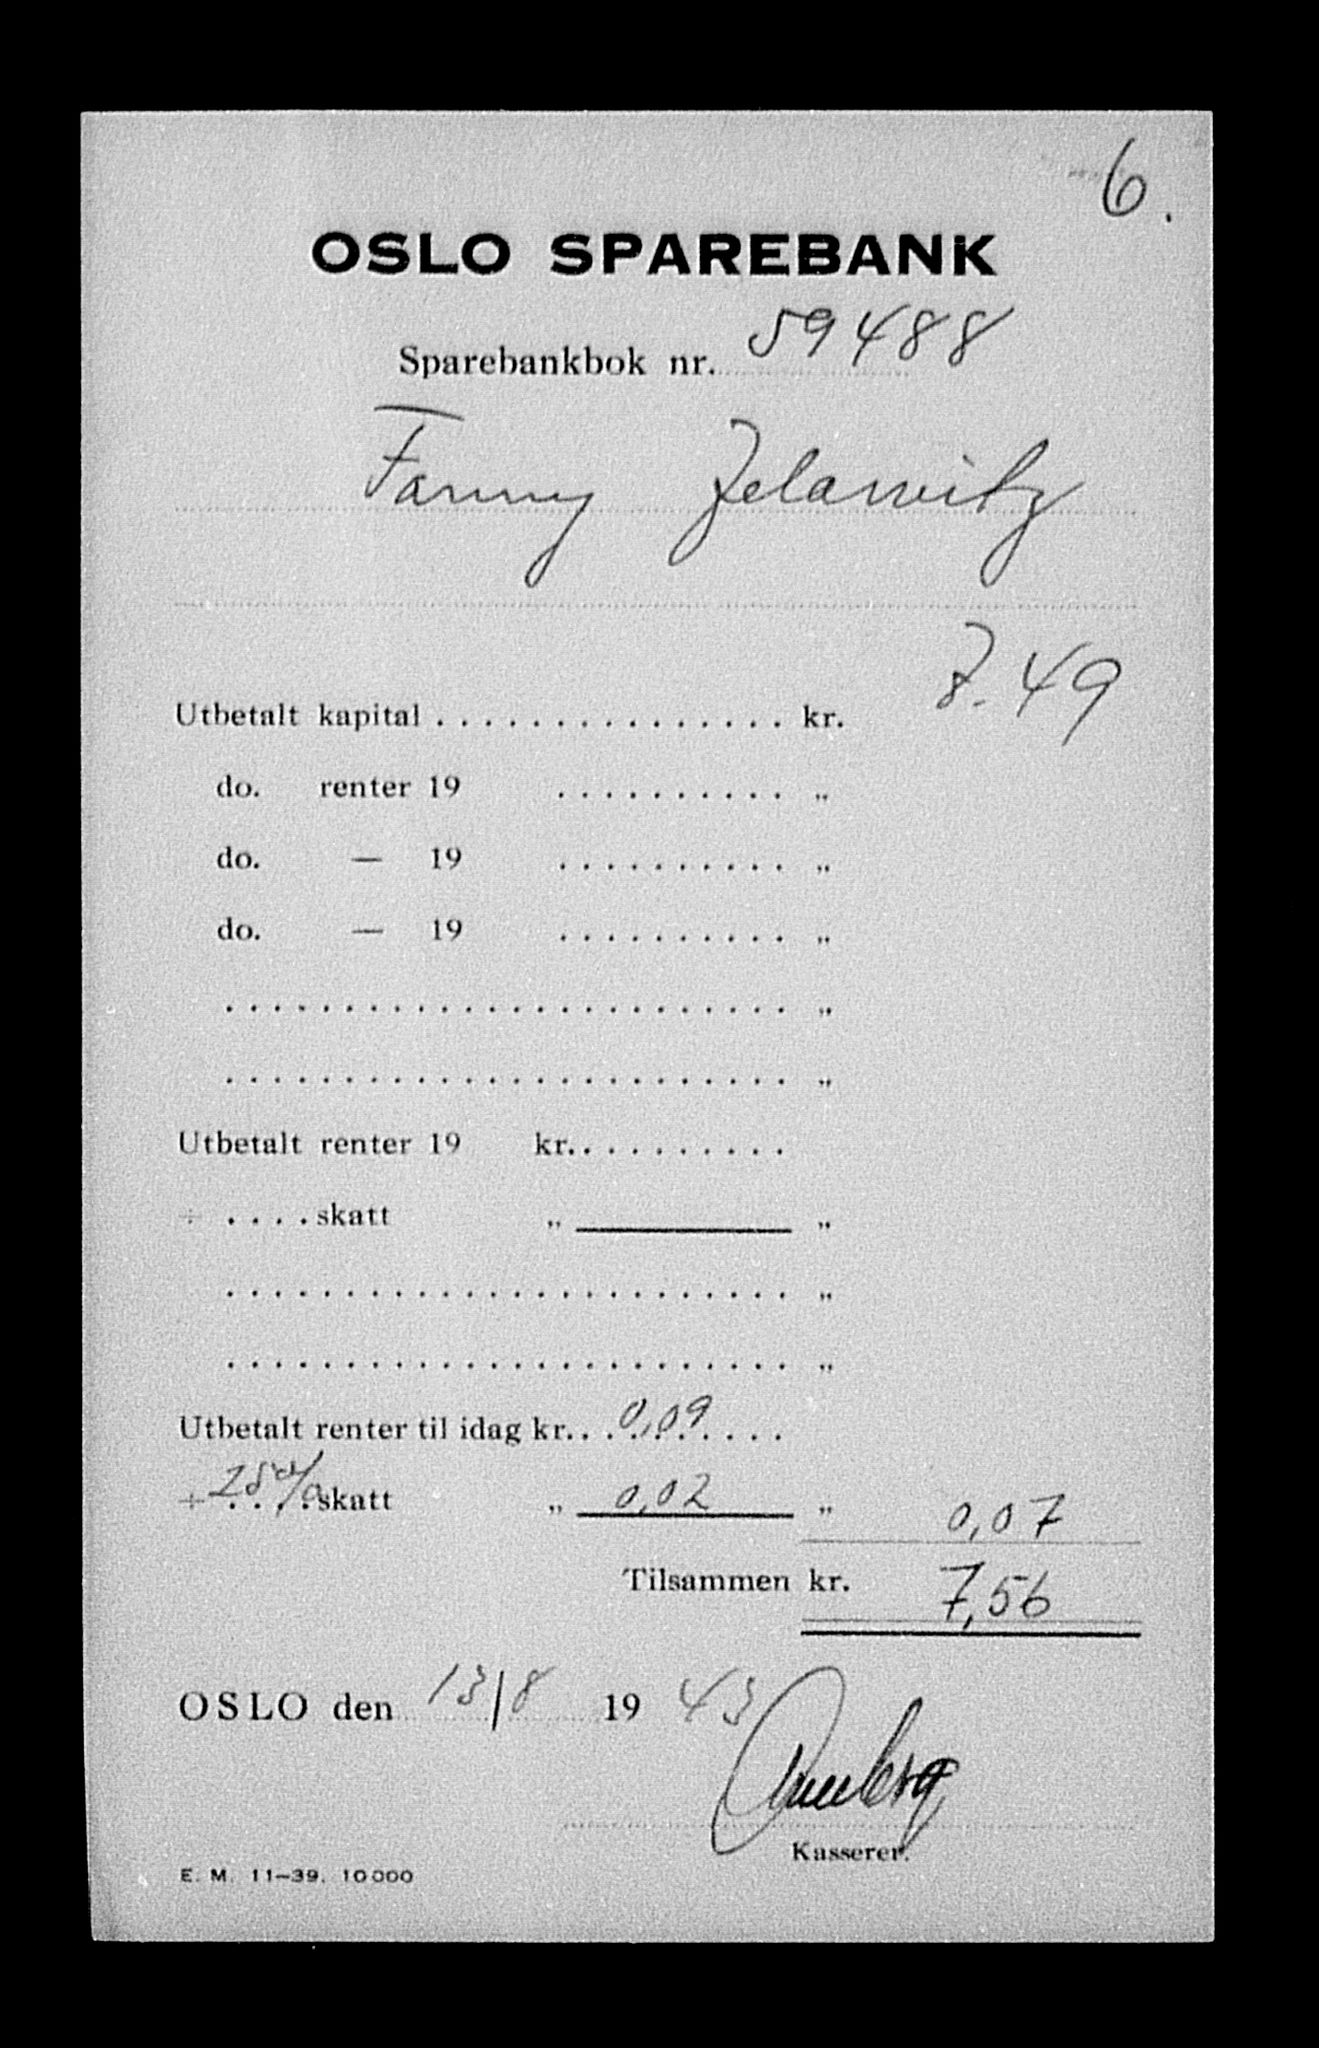 6.
OSLO SPAREBANK
Sparebankbok nr. 59488
Fanny Jelawitz
Utbetalt kapital . . . . . . . . . . . . . . . kr. 7.49
do. renter 19 . . . . . . . . . . „
do. — 19 . . . . . . . . . . „
do. — 19 . . . . . . . . . . „
. . . . . . . . . . . . . . . . . . . . . . . . „
. . . . . . . . . . . . . . . . . . . . . . . . „
Utbetalt renter 19 kr. . . . . . . . . .
÷ . . . . skatt „ „
. . . . . . . . . . . . . . . . . . . . . . . . „
. . . . . . . . . . . . . . . . . . . . . . . . „
Utbetalt renter til idag kr. 0,09
÷ 25% skatt „ 0,02 „ 0,07
Tilsammen kr. 7,56
OSLO den 13/8 1943
Kasserer.
E. M. 11–39. 10000